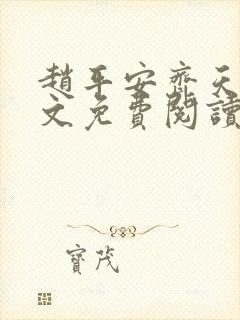 趙平安齊天
文免費閱讀
寶茂